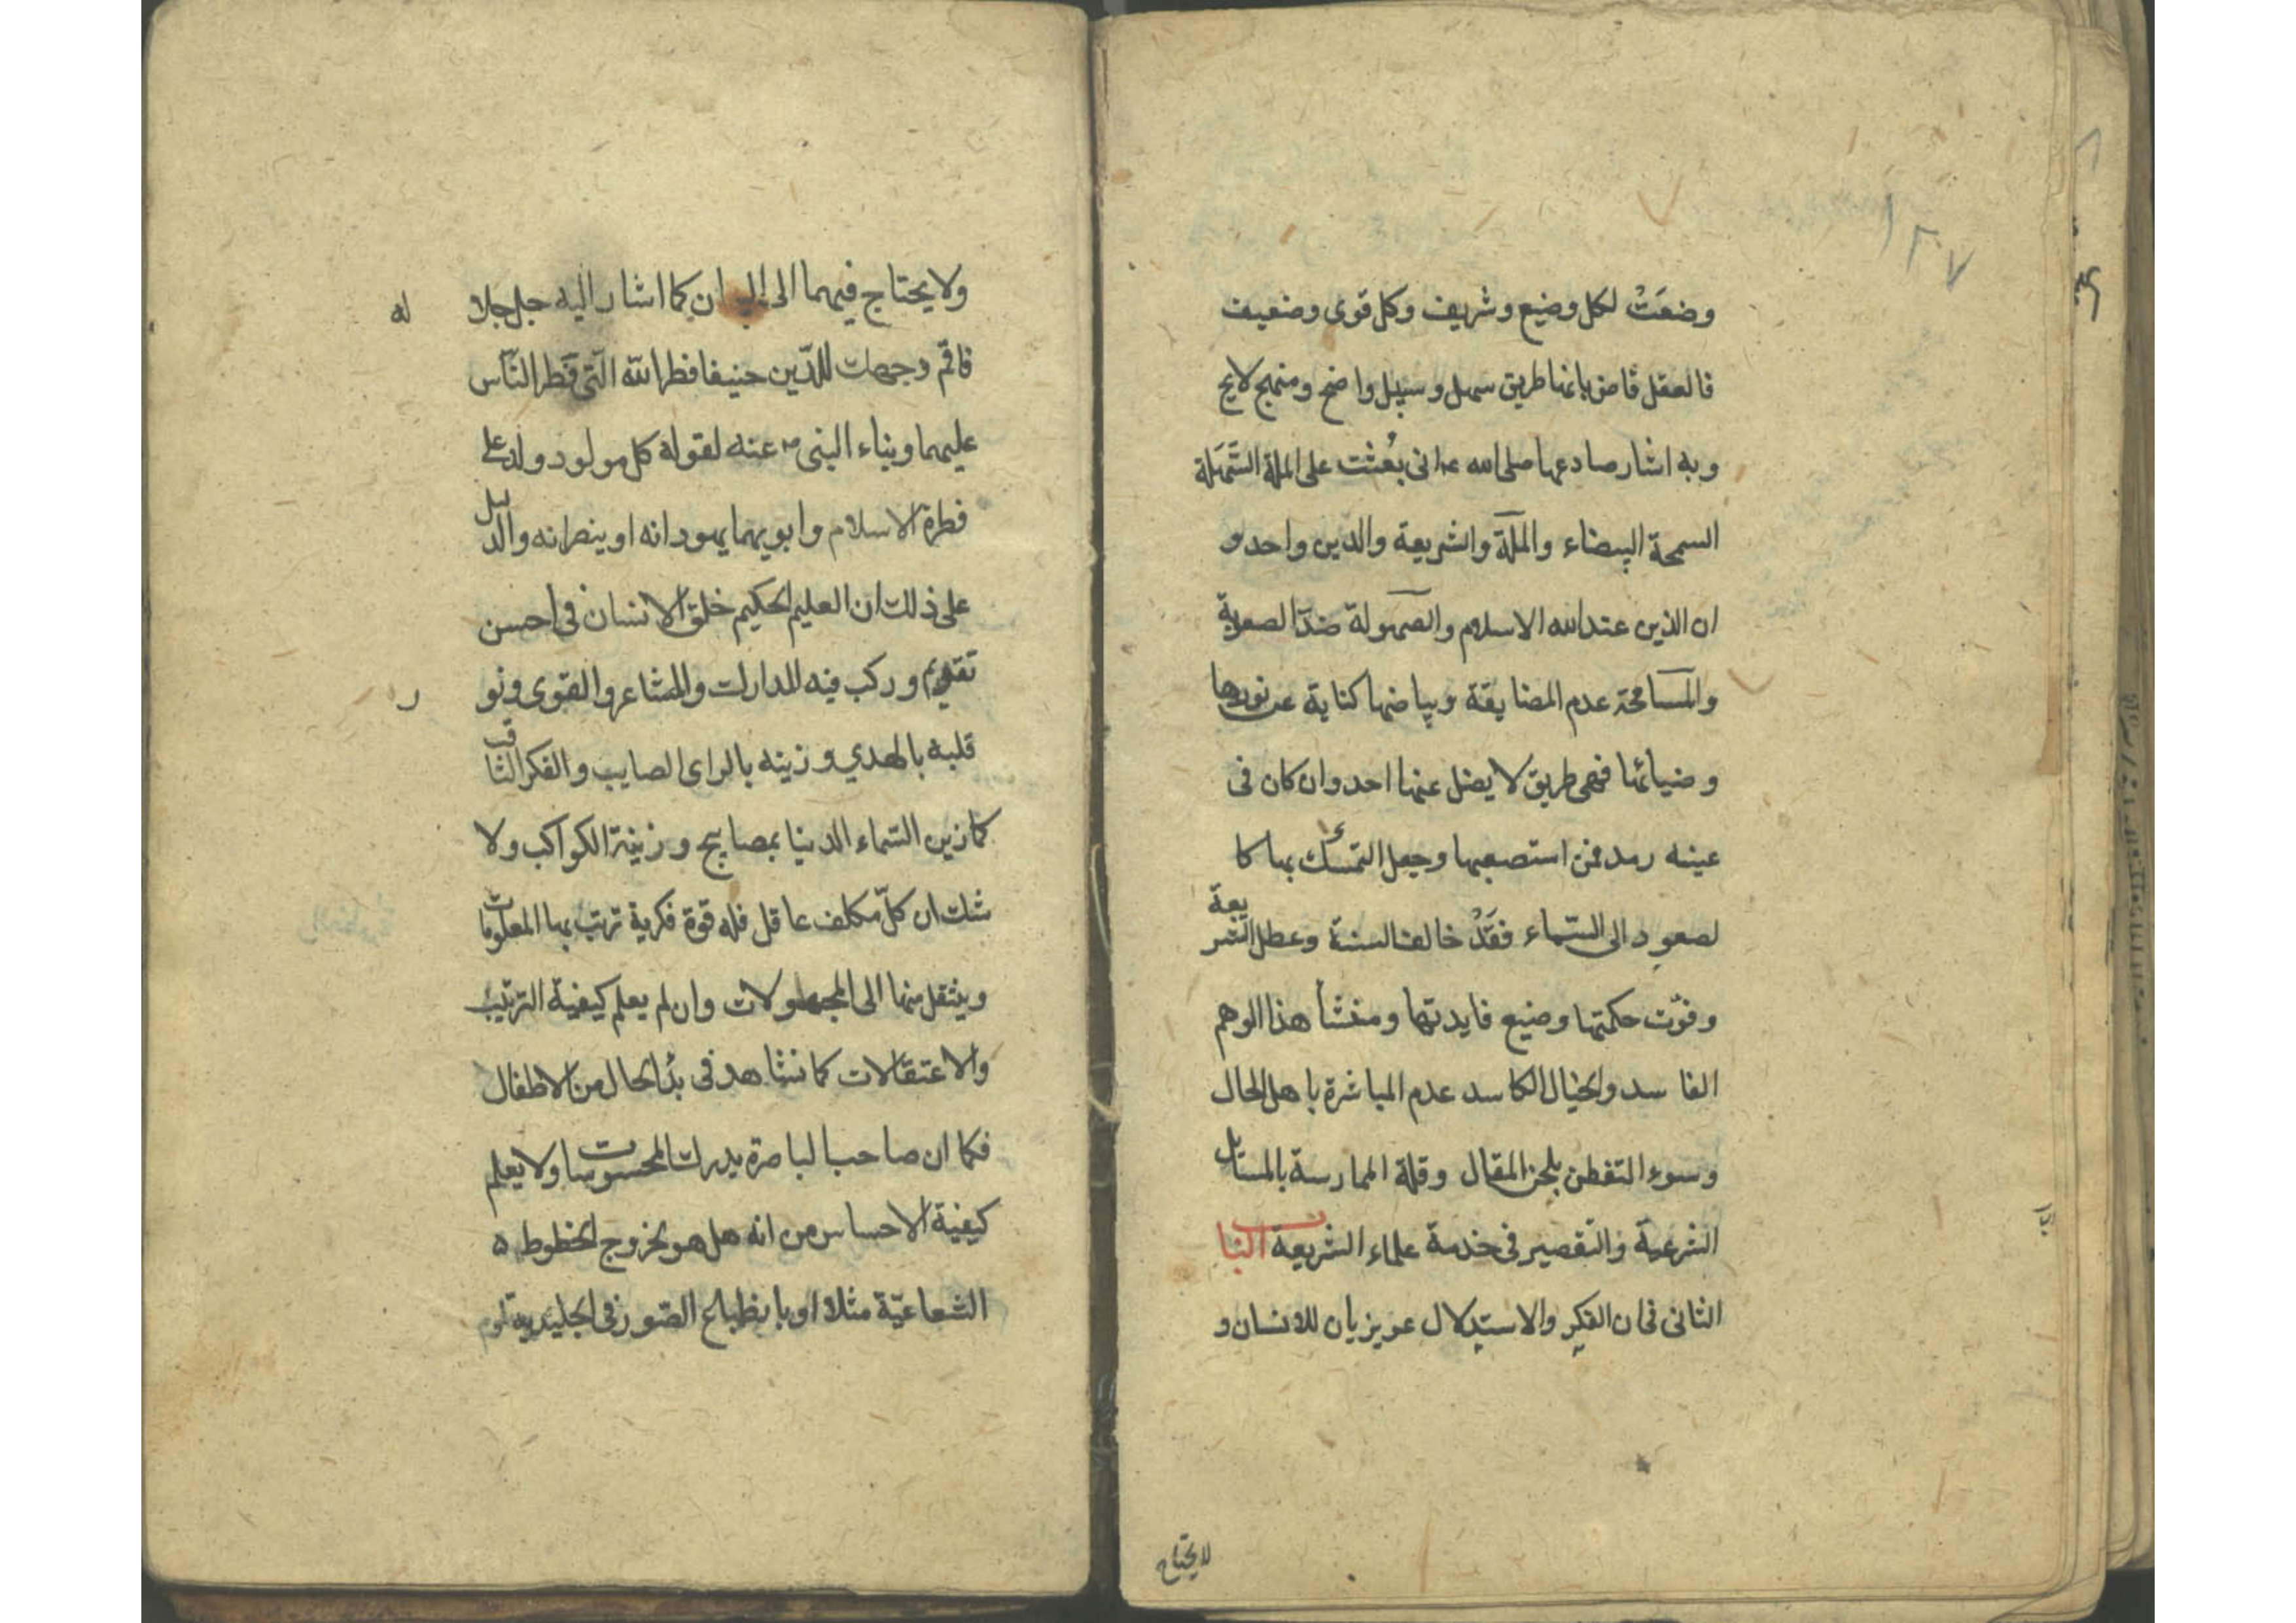 ١٢٧
وضعَتْ لكل وضيع وشريف وكل قوى وضعيف
فالعقل قاض بانها طريق سهل وسبيل واضح ومنهج لايح
وبه اشار صادعها صلى الله عـ انى بُعثت على الملة السَّهَلة
السمحة البيضاء والملّة والشريعة والدين واحد و
ان الدين عند الله الاسلام والسهولة ضدّ الصعوبة
والمسامحة عدم المضايقة وبياضها كناية عن نورها
وضيائها فهى طريق لا يضل عنها احد وان كان فى
عينه رمد فمن استصعبها وجعل التمسك بها كا
لصعود الى السّماء فقَدْ خالف السنة وعطل الشريعة
وفوّت حكمتها وضيع فايدتها ومنشأ هذا الوهم
الفاسد والخيال الكاسد عدم المباشرة باهل الحال
وسوء التفطن بلحن المقال وقلة الممارسة بالمسائل
الشرعية والتقصير فى خدمة علماء الشريعة الباب
الثانى فى ان الفكر والاستدلال عزيزيان للانسان و
لا يحتاج
ولا يحتاج فيهما الى ان كما اشار اليه جل جلاله
فاقم وجهك للدّين حنيفا فطرا لله الّتى فَطر النّاس
عليهما وبناء النبى عنه لقوله كل مولود ولد على
فطرة الاسلام وابويهما يهودانه او ينصرانه والدليل
على ذلك ان العليم الحكيم خلق الانسان فى احسن
تقويم وركب فيه المدارك والمشاعر والقوى ونور
قلبه بالهدي وزينه بالراى الصايب والفكر الثاقب
كما زين السّماء الدنيا بمصابيح وزينة الكواكب ولا
شك ان كلّ مكلف عاقل فله قوة فكرية ترتب بها المعلومات
وينتقل منها الى المجهولات وان لم يعلم كيفية الترتيب
والاعتقالات كما نشاهد فى بدأ الحال من الاطفال
فكما ان صاحب الباصرة يدرك المحسوسات ولا يعلم
كيفية الاحساس من انه هل هو بخروج الخطوط
الشعاعيّة مثلا او بانطباع الصّور فى الجليدية